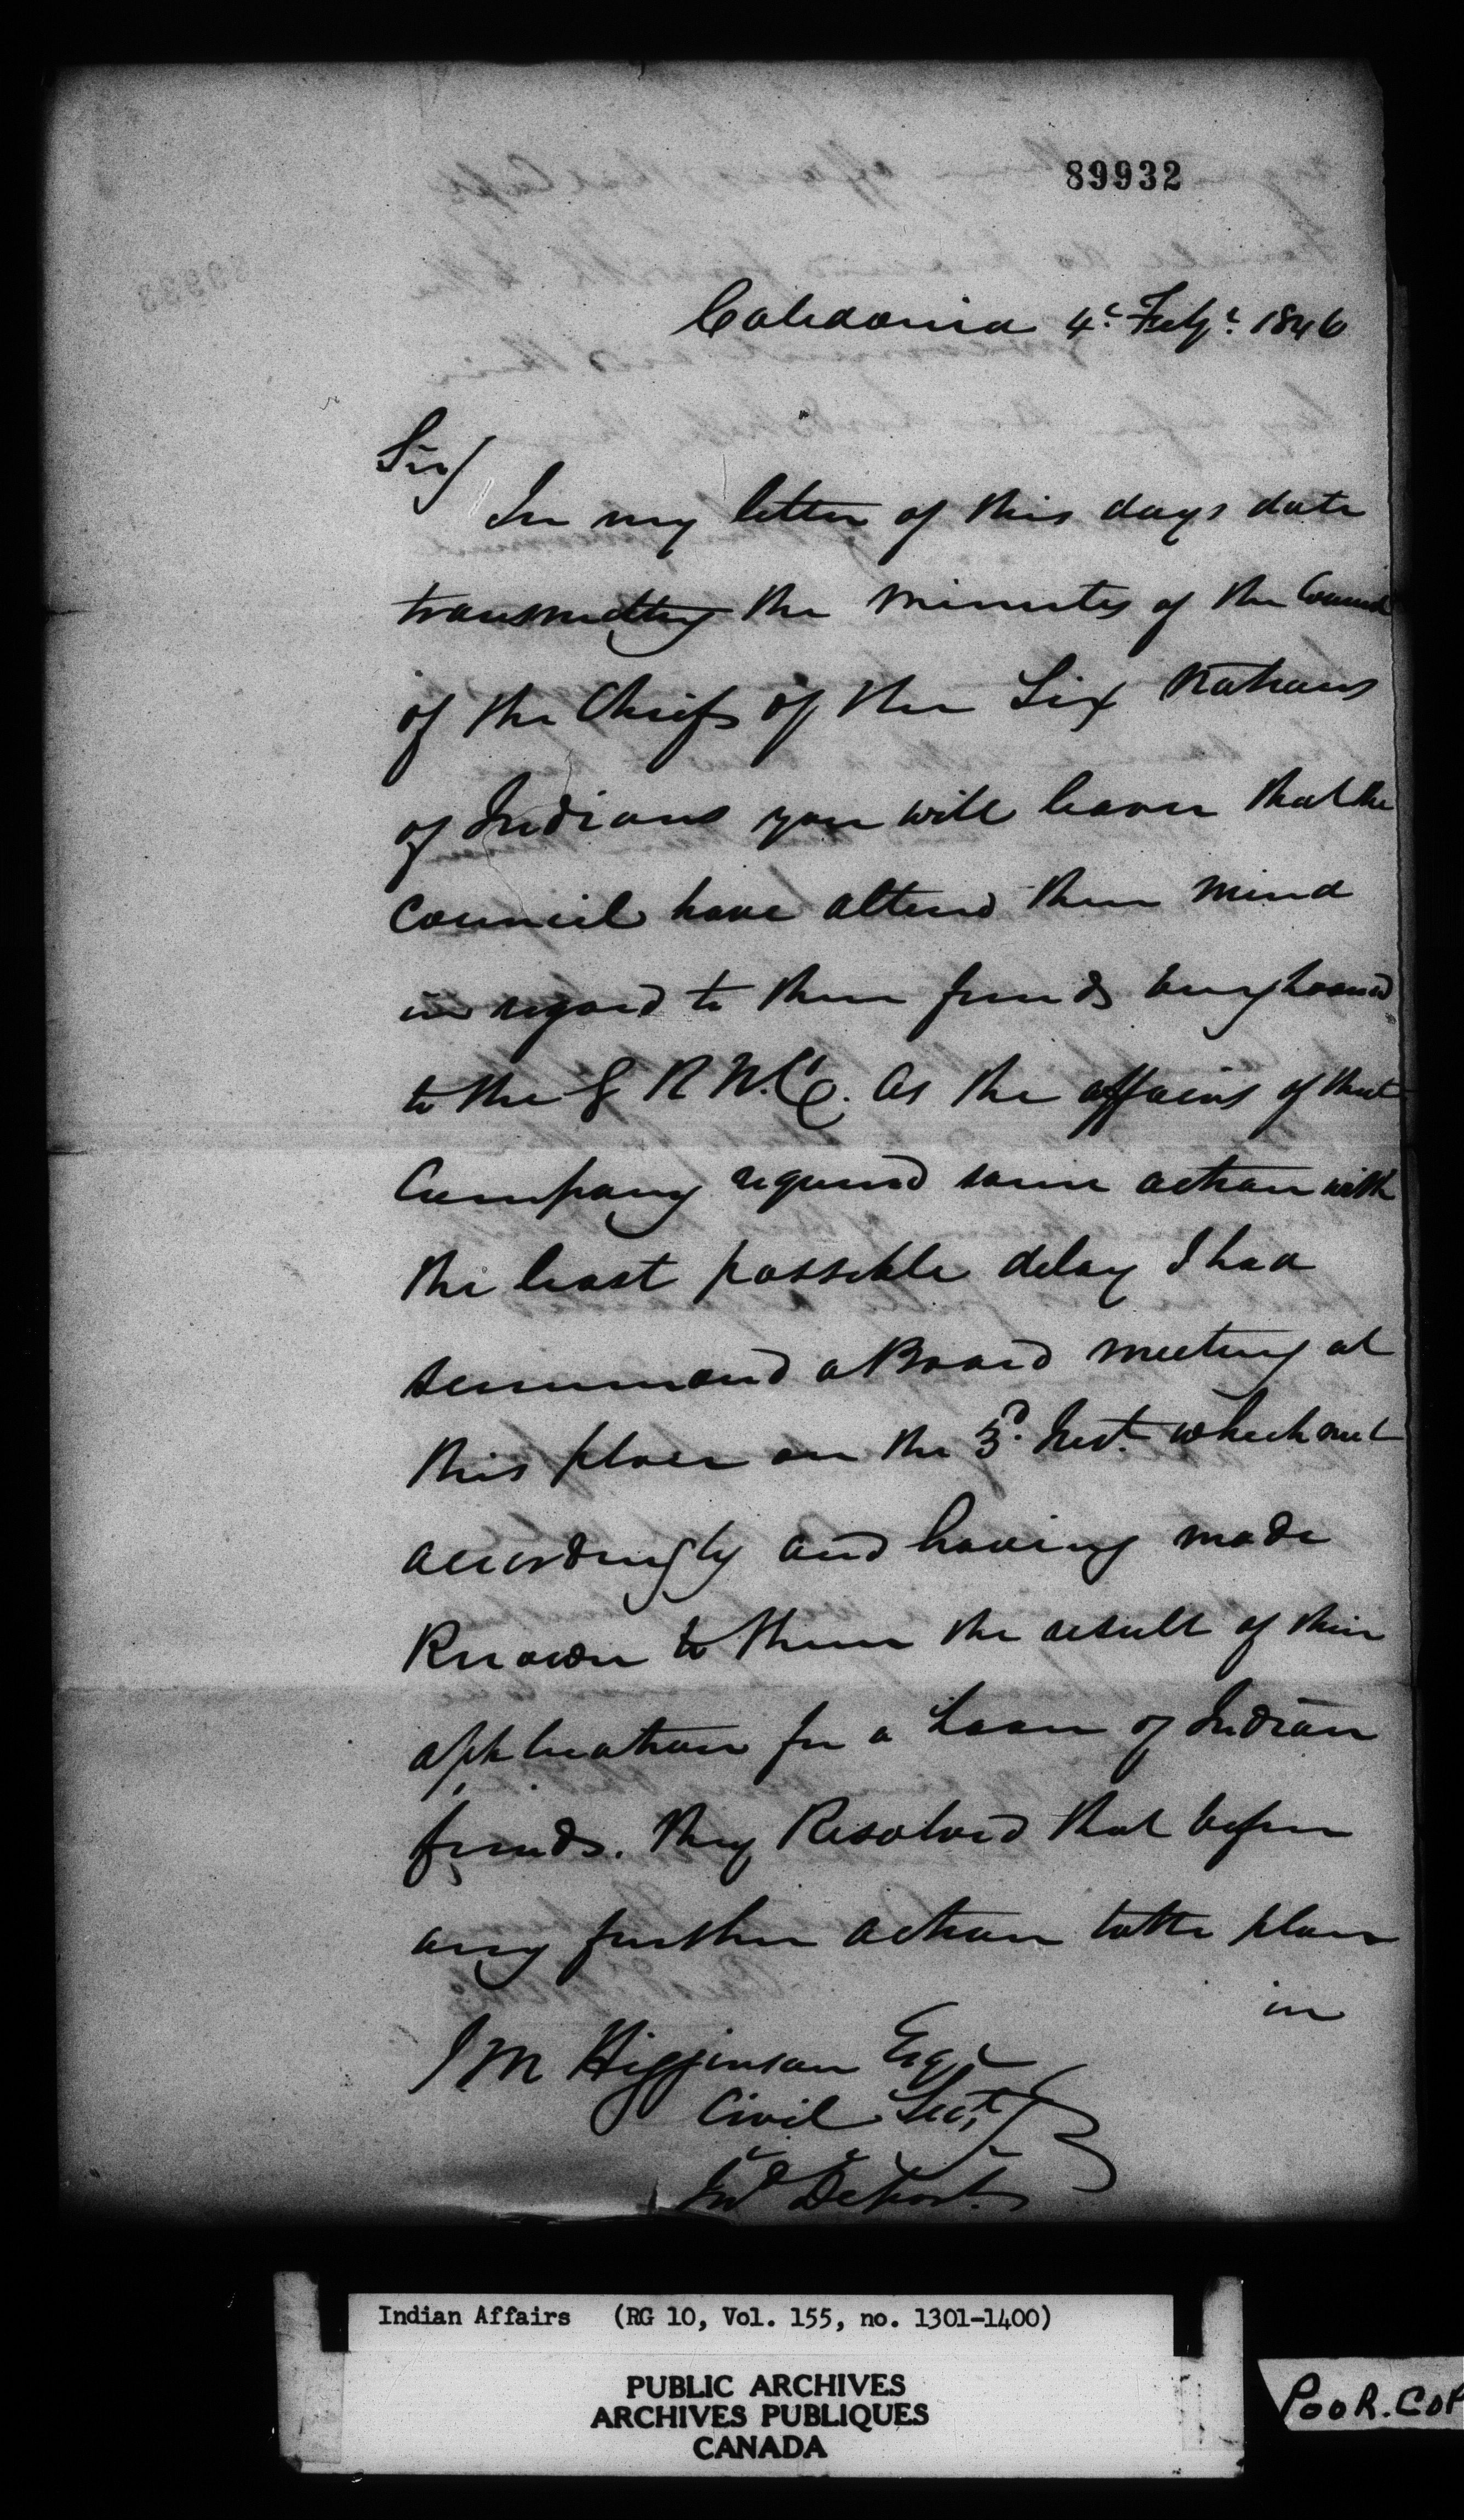 89932
Caledonia 4th Feby. 1846
Sir/
In my letter of this days date
transmitting the minutes of the Council
of the Chiefs of the Six Nations
of Indians you will learn that the
Council have altered their mind
in regard to their funds being loaned
to the G R N. Co. As the affairs of that
Company required some action with
the least possible delay I had
summoned a Board meeting at
this place on the 3d. Inst. which met
accordingly and having made
Known to them the result of their
application for a Loan of Indian
funds. They Resolved that before
any further action take place
in
J M Higginson Esqr
Civil Secty
Ind Depart.
Indian Affairs (RG 10, Vol. 155, no. 1301-1400)
PUBLIC ARCHIVES
ARCHIVES PUBLIQUES
CANADA
POOR.COP